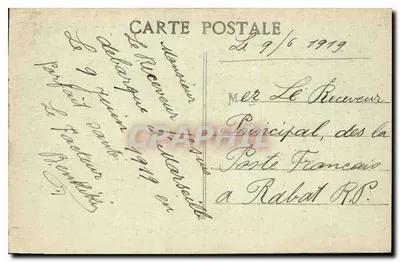 CARTE POSTALE
le 9/6 1919
Monsieur
Le Receveur
debarqué Marseille
Le 9 Juin 1919 en
parfait santé
Le Facteur
Mer Le Receveur
Principal, des la
Poste Francais
a Rabat R.P.
CPARAMA